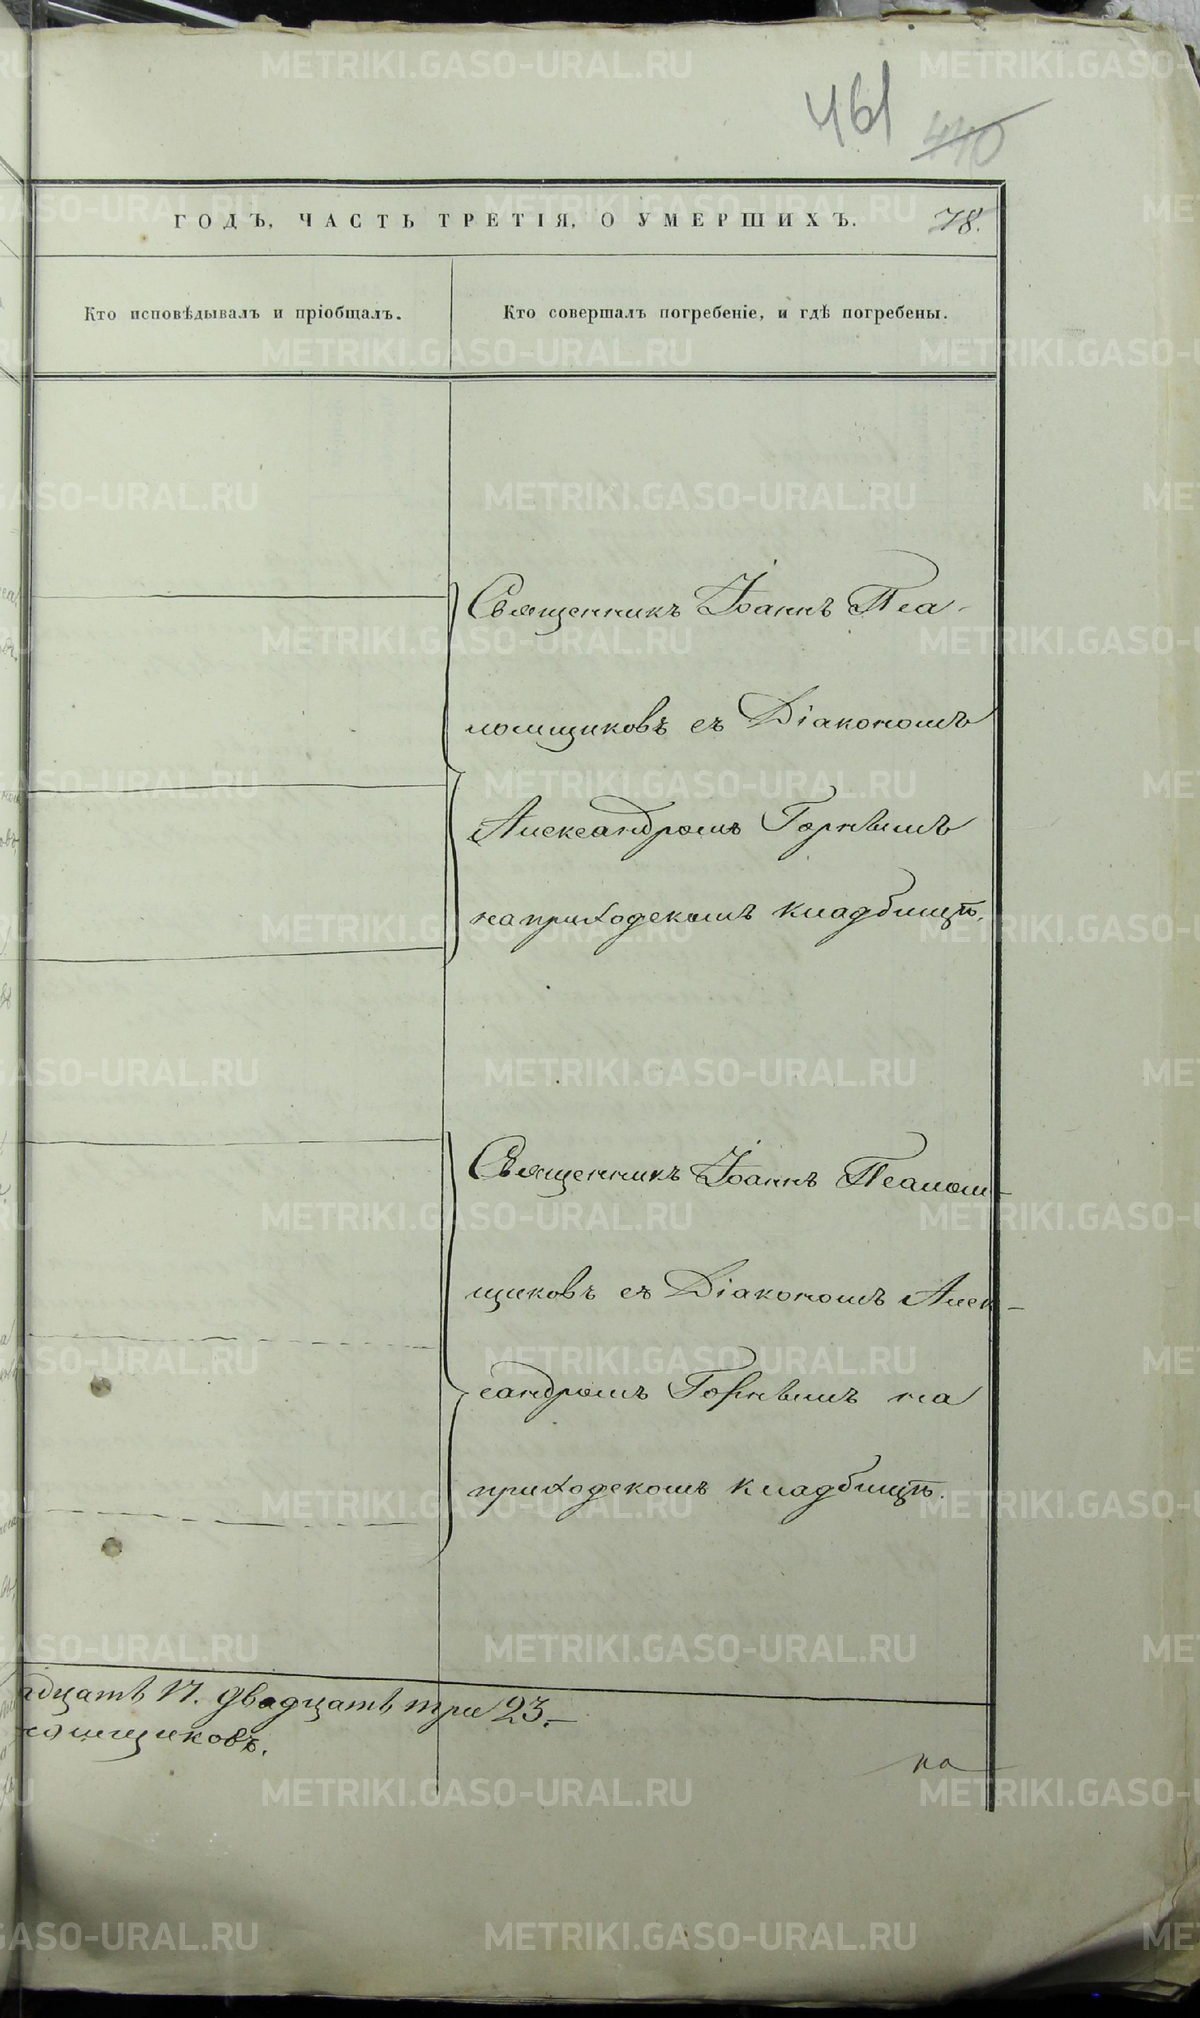 461 440
ГОДЪ, ЧАСТЬ ТРЕТІЯ, О УМЕРШИХЪ. 78.
Кто исповѣдывалъ и пріобщалъ.
Кто совершалъ погребеніе, и гдѣ погребены.
Священникъ Іоаннъ Пса-
ломщиковъ съ Діакономъ
Александромъ Горнымъ
на приходскомъ кладбищѣ.
Священникъ Іоаннъ Псалом-
щиковъ съ Діакономъ Алек-
сандромъ Горнымъ на
приходскомъ кладбищѣ.
адцать 17. двадцать три 23.
омщиковъ.
на
METRIKI.GASO-URAL.RU